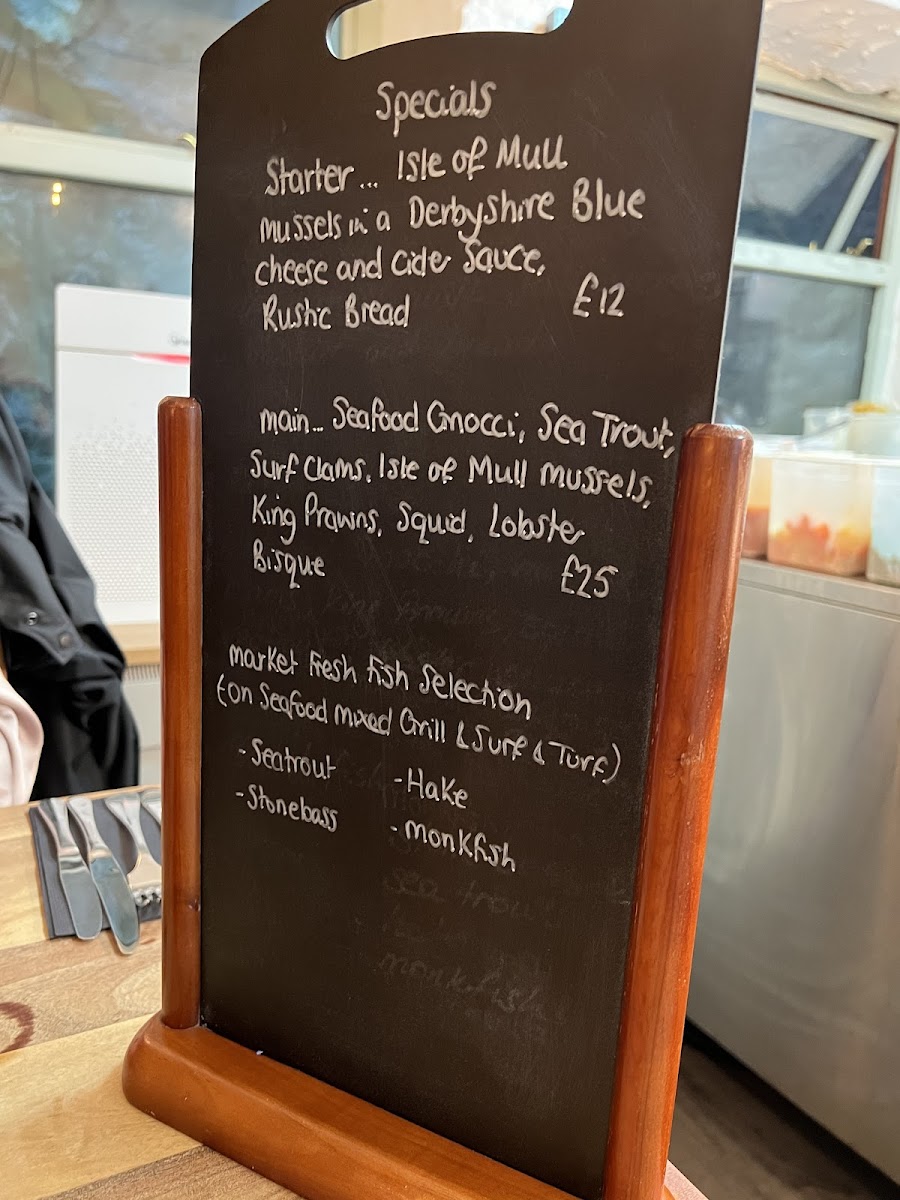 Specials
Starter... Isle of Mull
mussels in a Derbyshire Blue
cheese and cider Sauce,
Rustic Bread £12
main... Seafood Gnocci, Sea Trout,
Surf Clams, Isle of Mull mussels,
King Prawns, Squid, Lobster
Bisque £25
market fresh fish Selection
(on Seafood mixed Grill & Surf & Turf)
- Seatrout - Hake
- Stonebass - monkfish
sea trou
monkfish